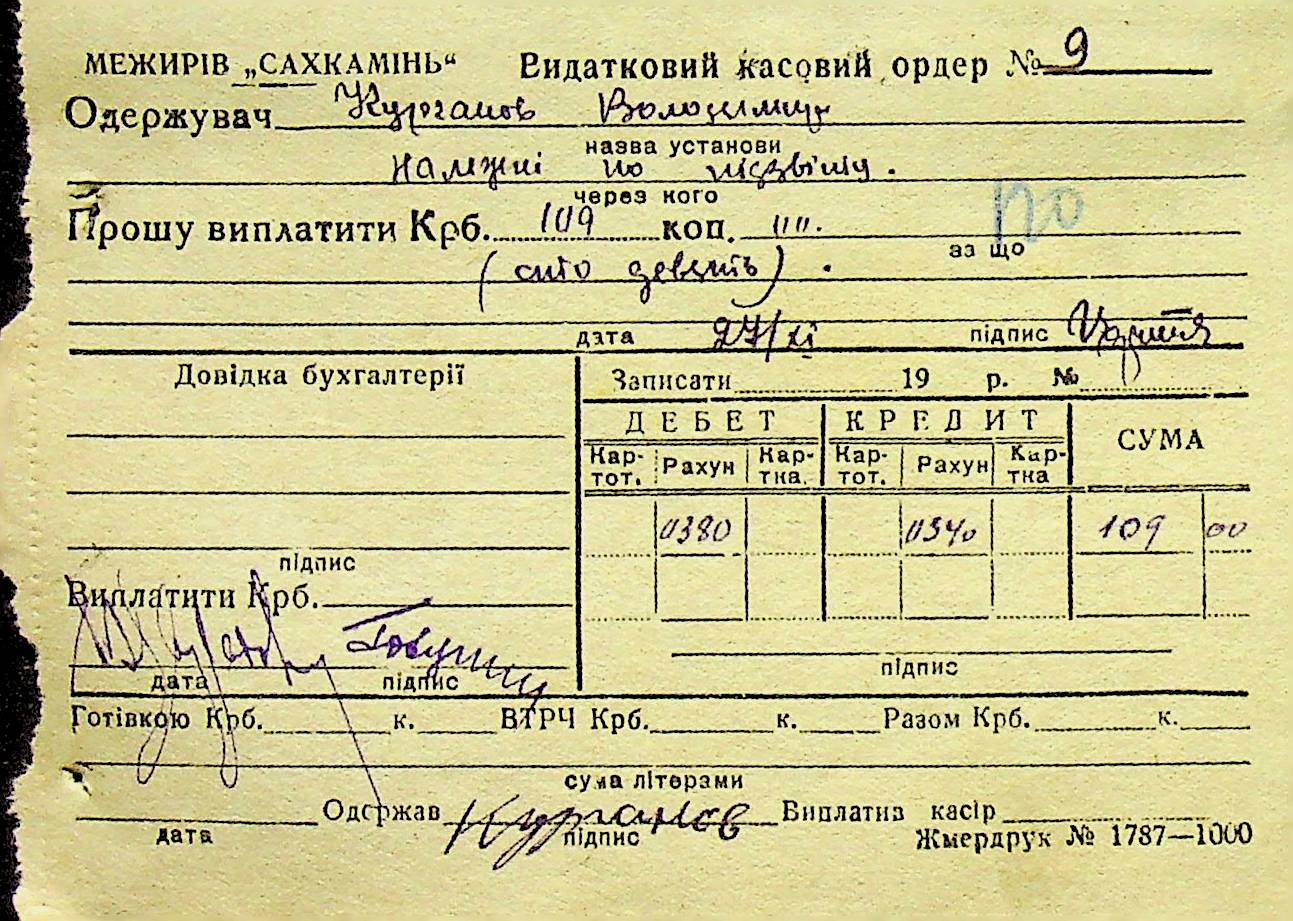 МЕЖИРІВ „САХКАМІНЬ“ Видатковий касовий ордер № 9
Одержувач Курганов Володимир
назва установи
належні по
через кого
Прошу виплатити Крб. 109 коп. 00.
за що
(сто девять).
дата 27/XI підпис
Довідка бухгалтерії
Записати 19 р. №
ДЕБЕТ КРЕДИТ СУМА
Кар-тот. Рахун Кар-тка. Кар-тот. Рахун Кар-тка
0380 0340 109 00
підпис
Виплатити Крб.
дата підпис
підпис
Готівкою Крб. к. ВТРЧ Крб. к. Разом Крб. к.
сума літерами
Одержав Курганов Виплатив касір
дата підпис
Жмердрук № 1787—1000